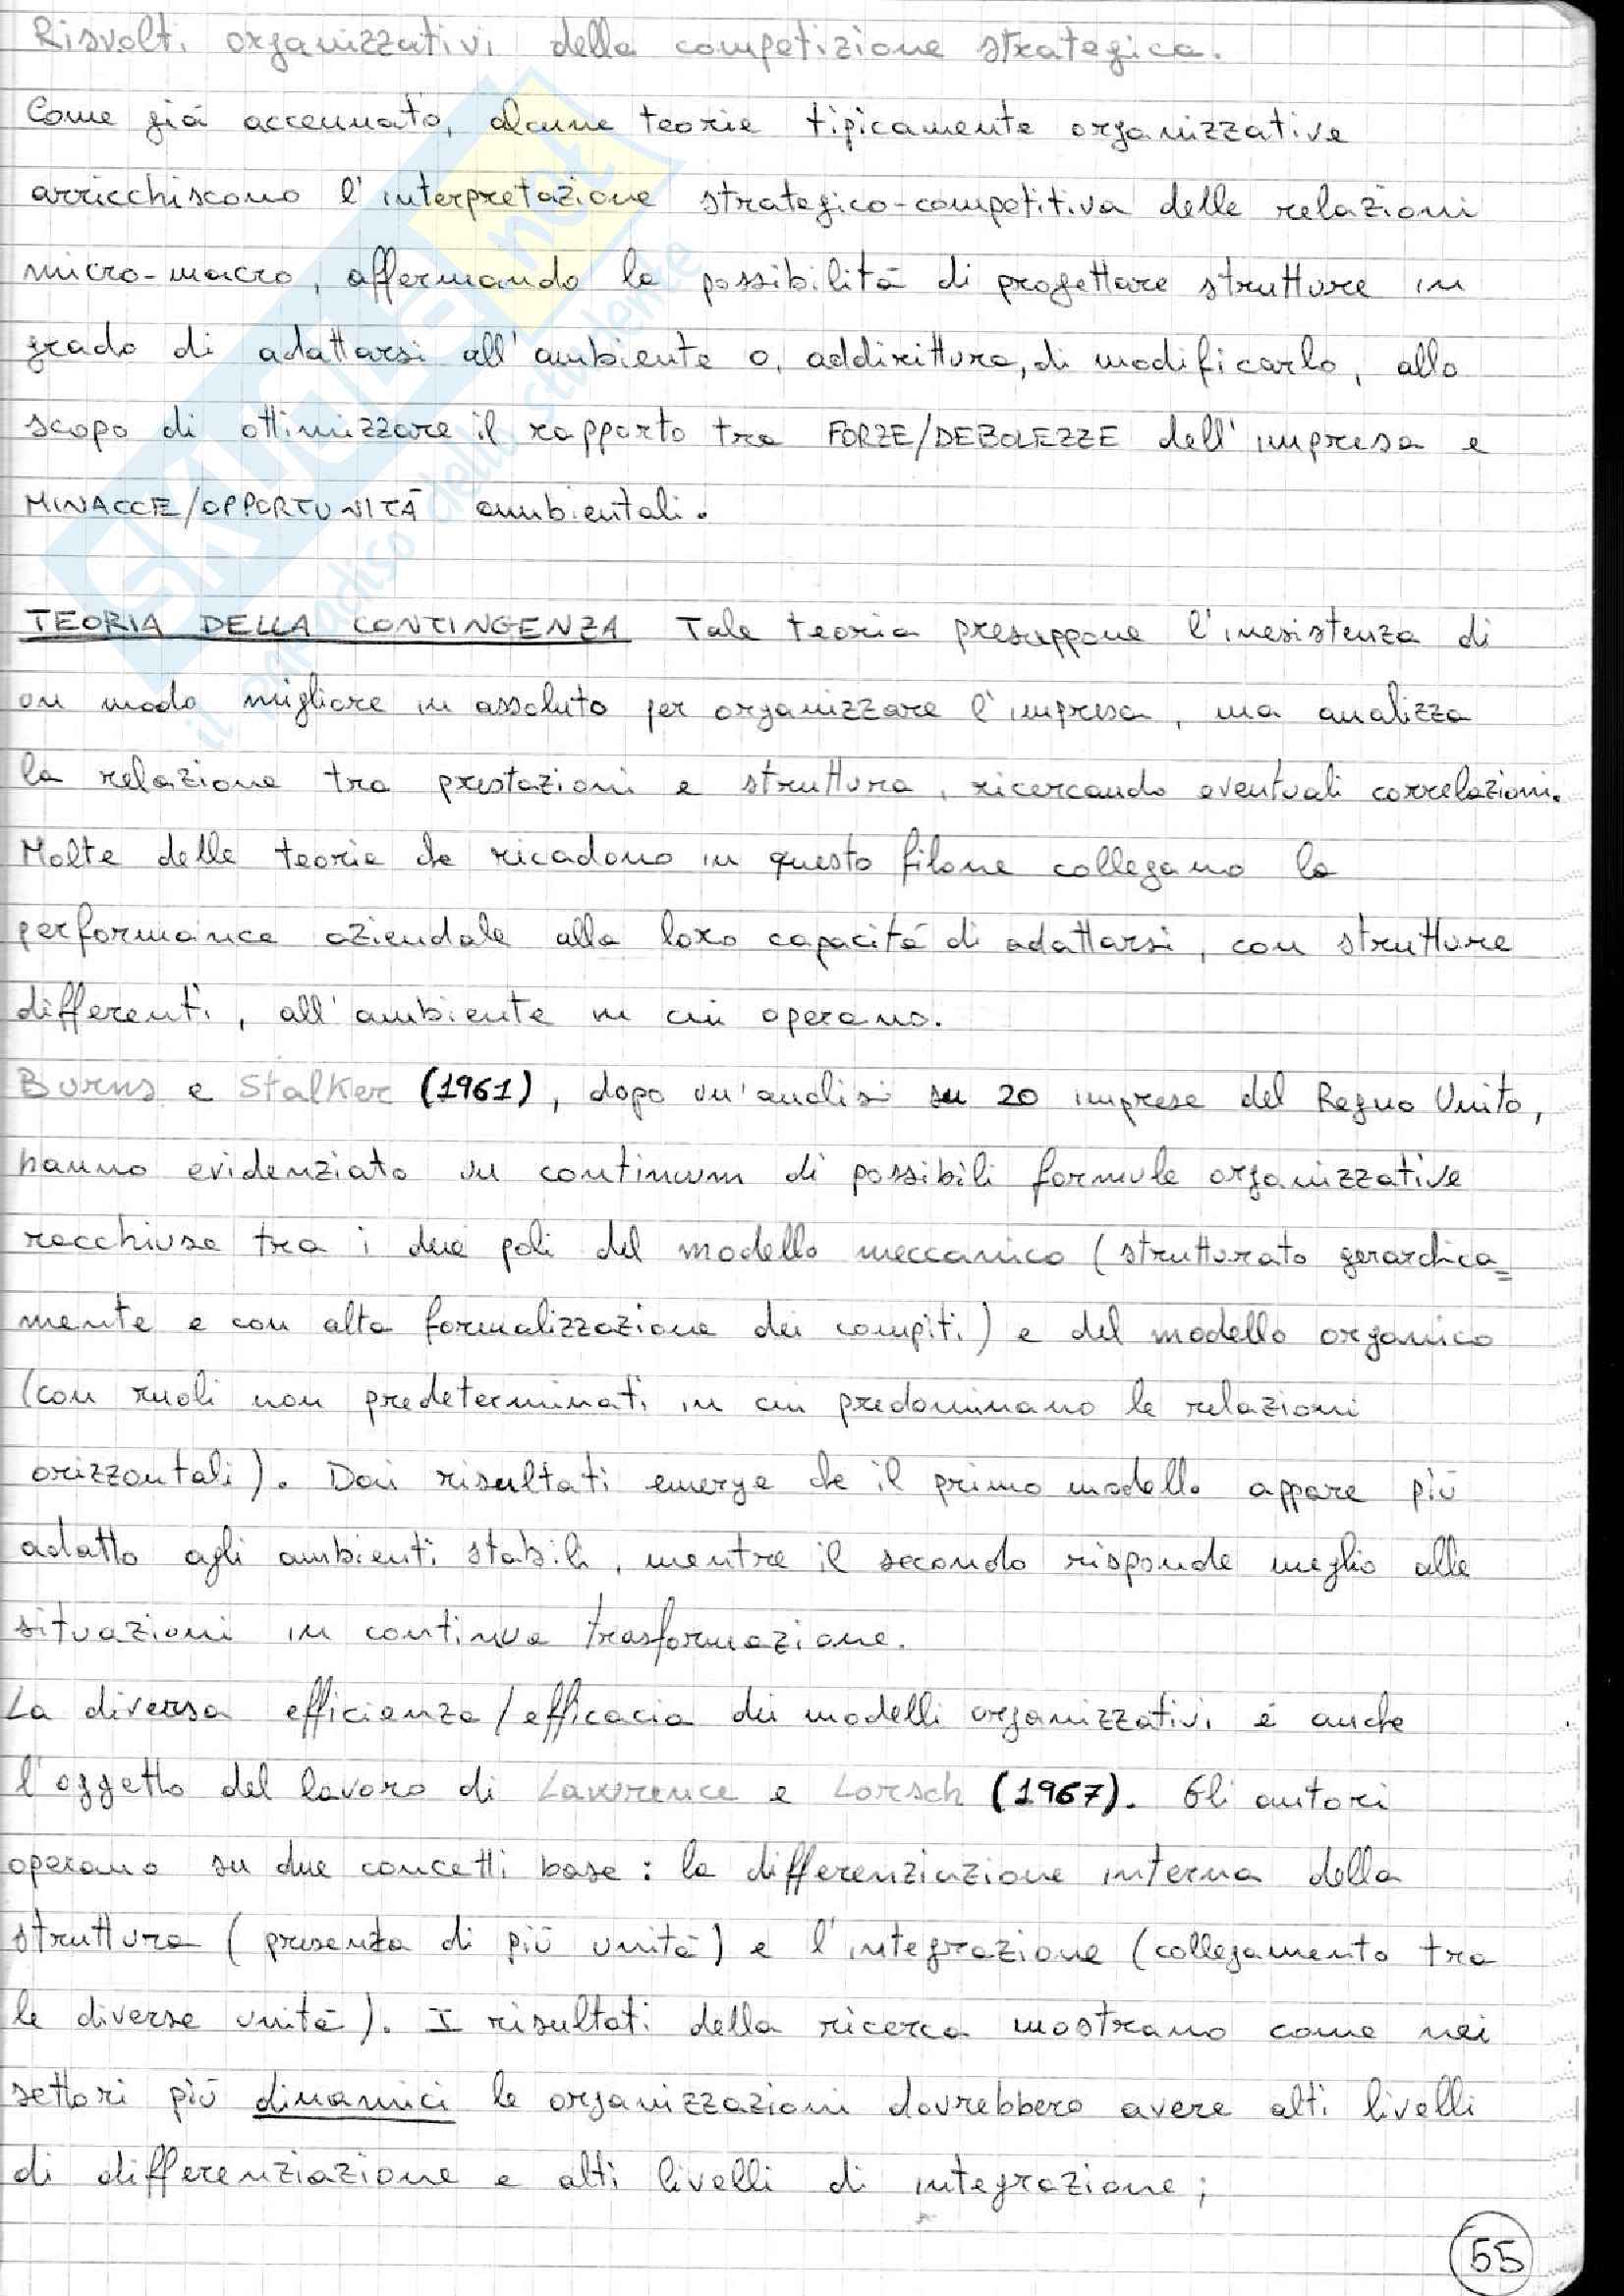 Risvolti organizzativi della competizione strategica.
Come già accennato, alcune teorie tipicamente organizzative
arricchiscono l'interpretazione strategico-competitiva delle relazioni
micro-macro, affermando la possibilità di progettare strutture in
grado di adattarsi all'ambiente o, addirittura, di modificarlo, allo
scopo di ottimizzare il rapporto tra FORZE/DEBOLEZZE dell'impresa e
MINACCE/OPPORTUNITÀ ambientali.
TEORIA DELLA CONTINGENZA Tale teoria presuppone l'inesistenza di
un modo migliore in assoluto per organizzare l'impresa, ma analizza
la relazione tra prestazioni e struttura, ricercando eventuali correlazioni.
Molte delle teorie che ricadono in questo filone collegano la
performance aziendale alla loro capacità di adattarsi, con strutture
differenti, all'ambiente in cui operano.
Burns e Stalker (1961), dopo un'analisi su 20 imprese del Regno Unito,
hanno evidenziato un continuum di possibili formule organizzative
racchiuse tra i due poli del modello meccanico (strutturato gerarchica=
mente e con alta formalizzazione dei compiti) e del modello organico
(con ruoli non predeterminati in cui predominano le relazioni
orizzontali). Dai risultati emerge che il primo modello appare più
adatto agli ambienti stabili, mentre il secondo risponde meglio alle
situazioni in continua trasformazione.
La diversa efficienza/efficacia dei modelli organizzativi é anche
l'oggetto del lavoro di Lawrence e Lorsch (1967). Gli autori
operano su due concetti base: la differenziazione interna della
struttura (presenza di più unità) e l'integrazione (collegamento tra
le diverse unità). I risultati della ricerca mostrano come nei
settori più dinamici le organizzazioni dovrebbero avere alti livelli
di differenziazione e alti livelli di integrazione;
55
SKUOLA.net
il paradiso dello studente